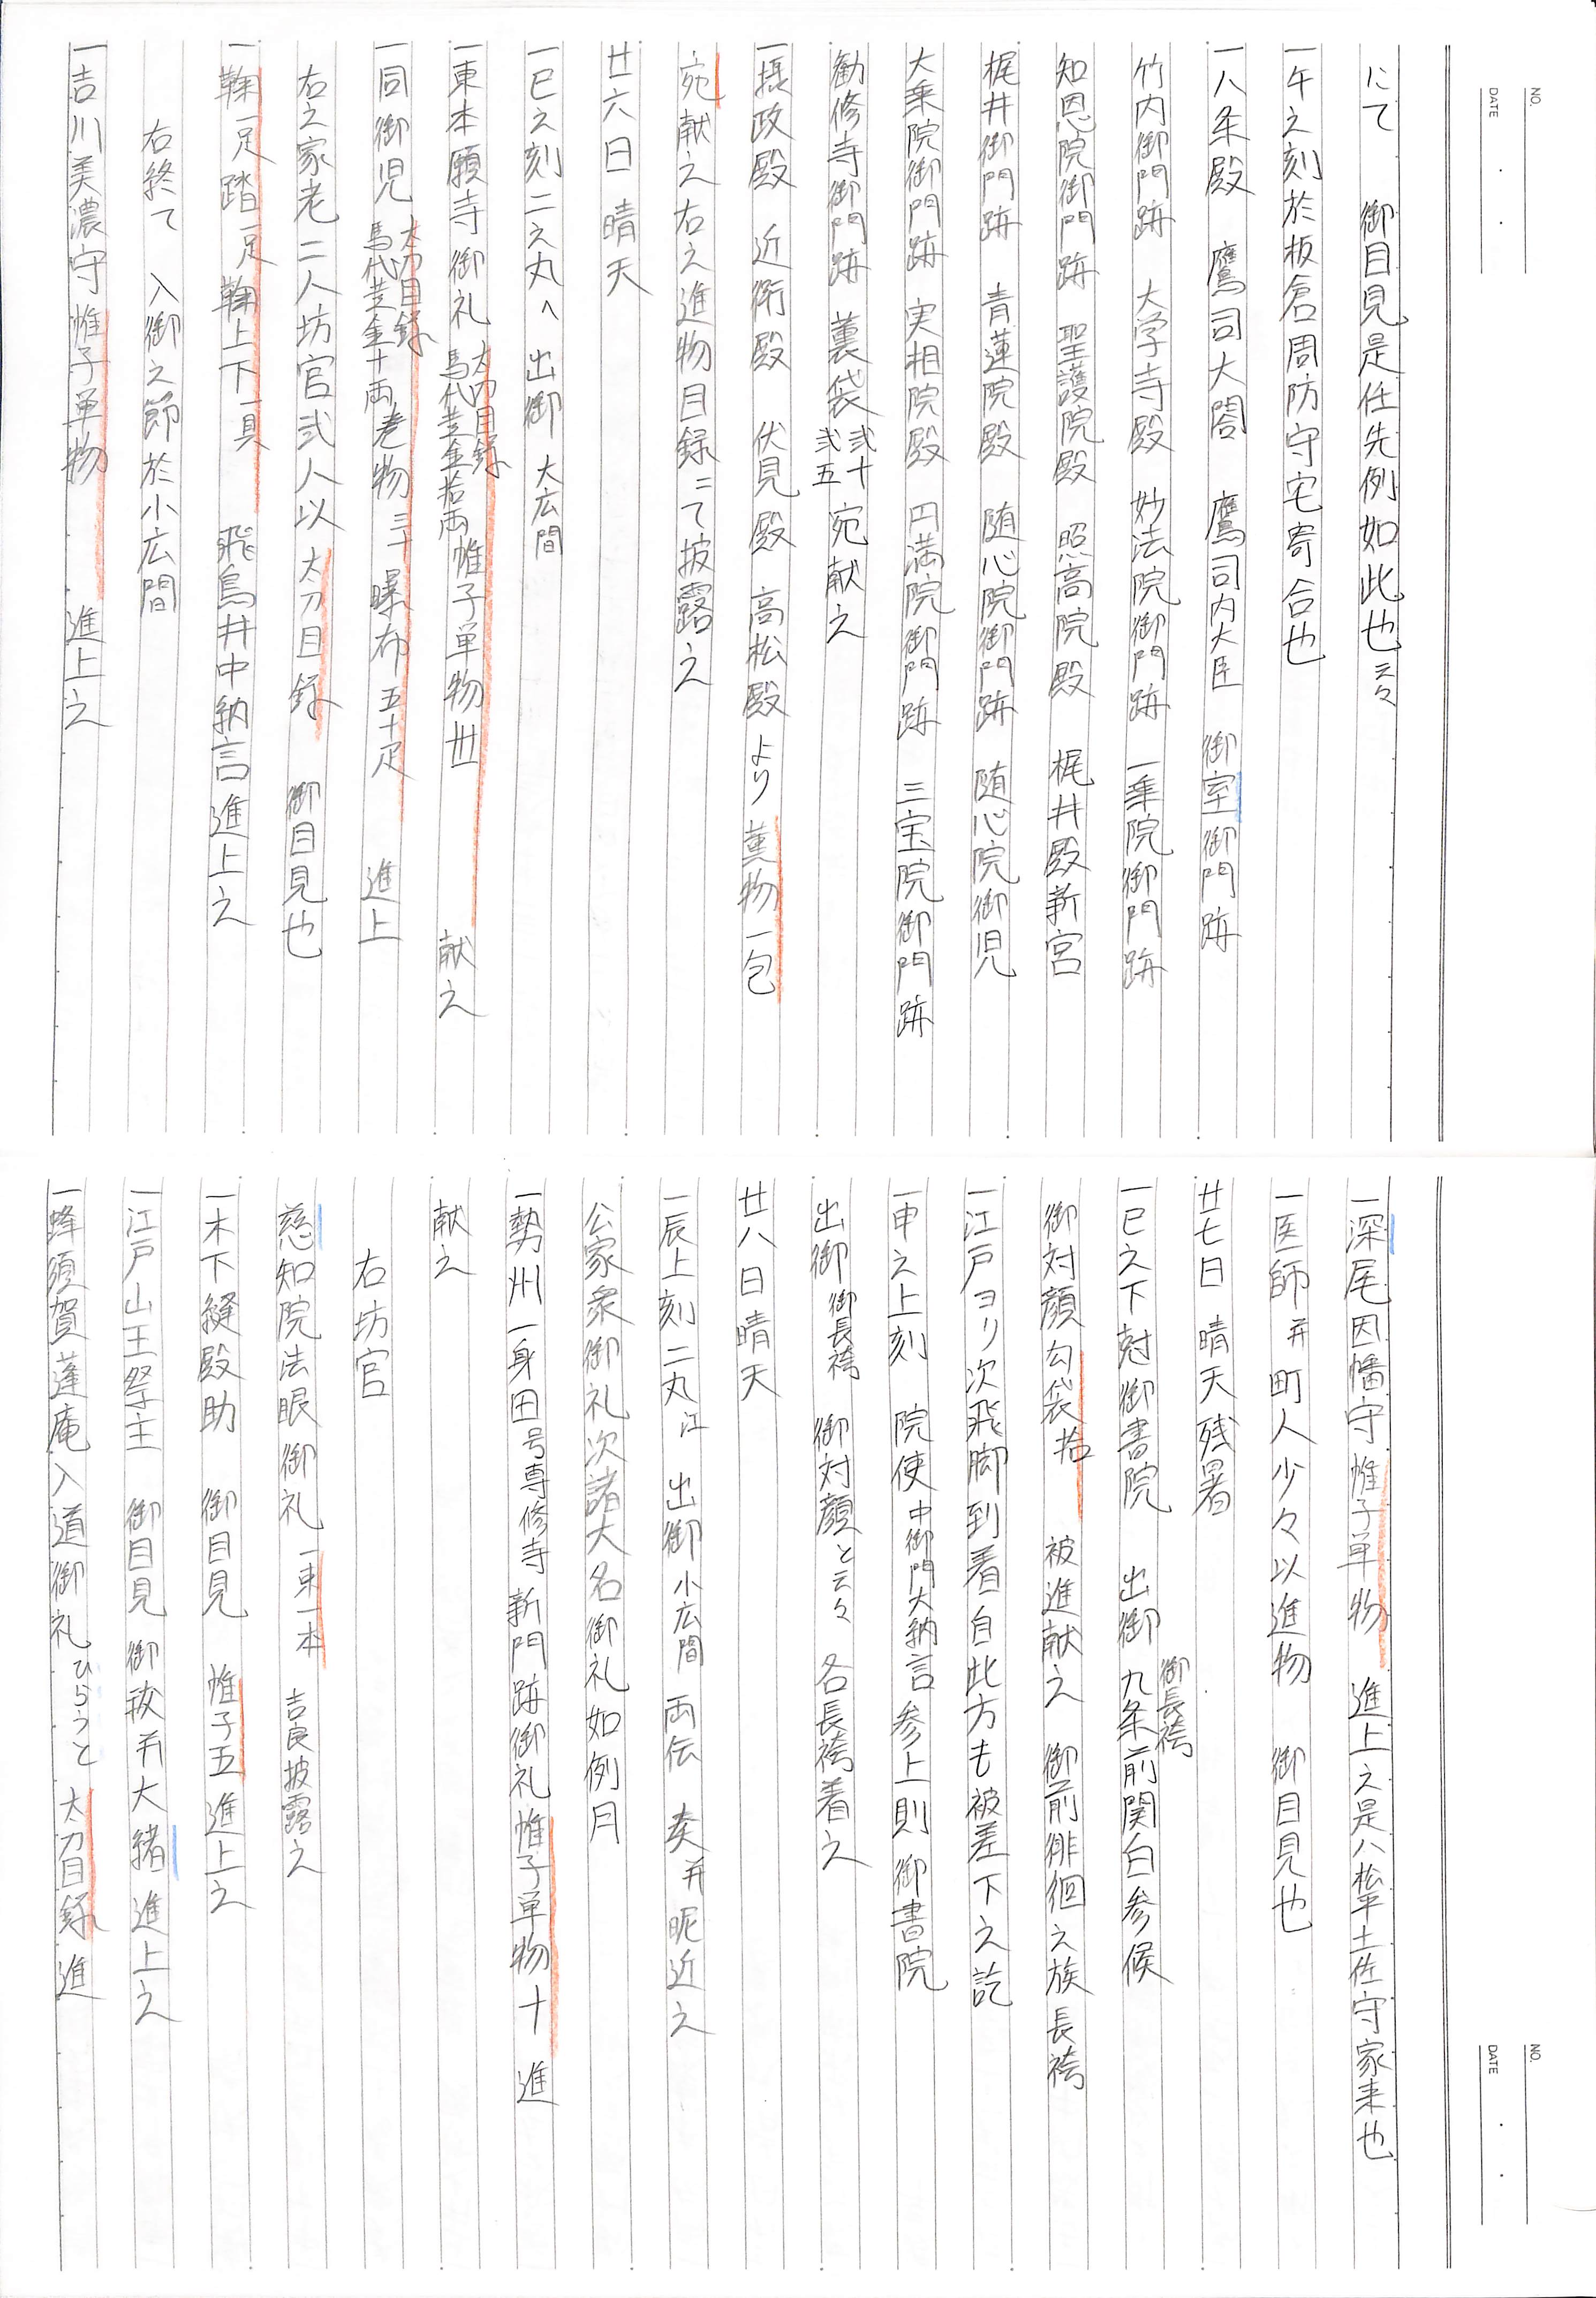 NO.
DATE
にて　御目見是任先例如此也云々
一午之刻於板倉周防守宅寄合也
一八条殿　鷹司大閤　鷹司内大臣　御室御門跡
竹内御門跡　大学寺殿　妙法院御門跡　一乗院御門跡
知恩院御門跡　聖護院殿　照高院殿　梶井殿新宮
梶井御門跡　青蓮院殿　随心院御門跡　随心院御児
大乗院御門跡　実相院殿　円満院御門跡　三宝院御門跡
勧修寺御門跡　薫袋弐十弐五宛献之
一摂政殿　近衛殿　伏見殿　高松殿より薫物一包
宛献之右之進物目録ニて披露之
廿六日　晴天
一巳之刻二之丸へ　出御　大広間
一東本願寺御礼　太刀目録馬代黄金拾両　帷子単物卅　献之
一同御児　太刀目録馬代黄金十両　巻物三十　曝布五十疋　進上
右之家老二人坊官弐人以太刀目録　御目見也
一鞠一足踏一足鞠上下一具　飛鳥井中納言進上之
右終て　入御之節於小広間
一吉川美濃守　帷子単物　進上之
NO.
DATE
一深尾因幡守帷子単物　進上之是ハ松平土佐守家来也
一医師并町人少々以進物　御目見也
廿七日　晴天残暑
一巳之下尅御書院　出御　御長袴　九条前関白参候
御対顔匂袋拾　被進献之　御前徘徊之族長袴
一江戸ヨリ次飛脚到着自此方も被差下之訖
一申之上刻　院使中御門大納言参上則　御書院
出御　御長袴　御対顔と云々　各長袴着之
廿八日晴天
一辰上刻二丸江　出御　小広間　両伝　奏并昵近之
公家衆御礼次諸大名御礼如例月
一勢州一身田号専修寺　新門跡御礼帷子単物十　進
献之
右坊官
慈知院法眼御礼　一束一本　吉良披露之
一木下縫殿助　御目見　帷子五進上之
一江戸山王祭主　御目見　御祓并大緒進上之
一蜂須賀蓬庵入道御礼ひらうと　太刀目録進